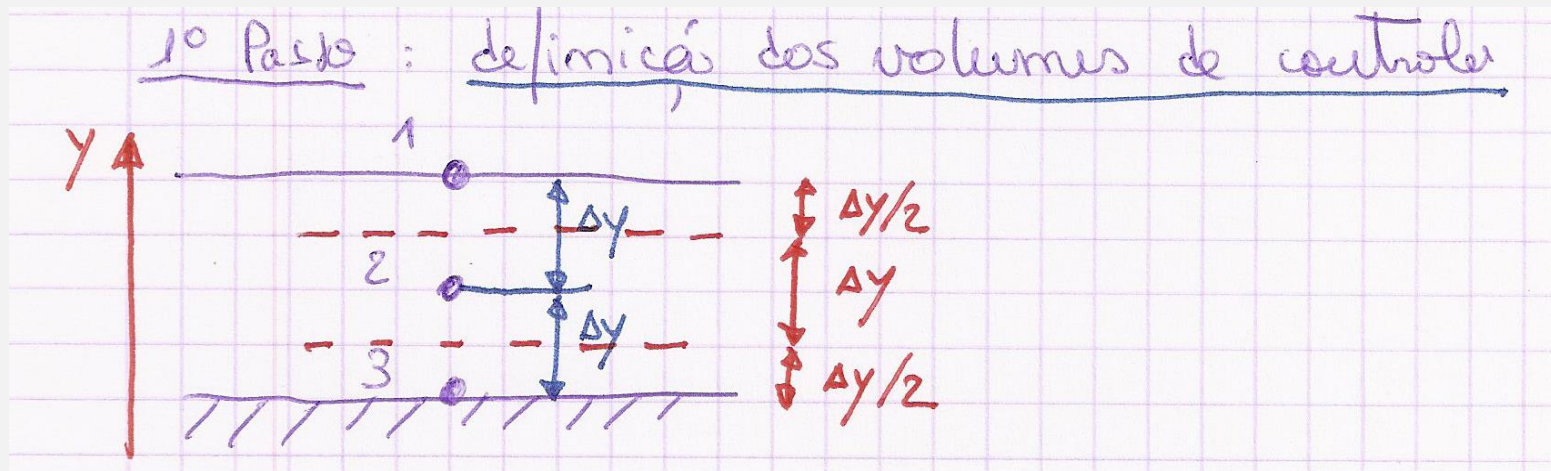 1º Passo : definição dos volumes de controlo
y
1
Δy/2
Δy
2
Δy
Δy
3
Δy/2